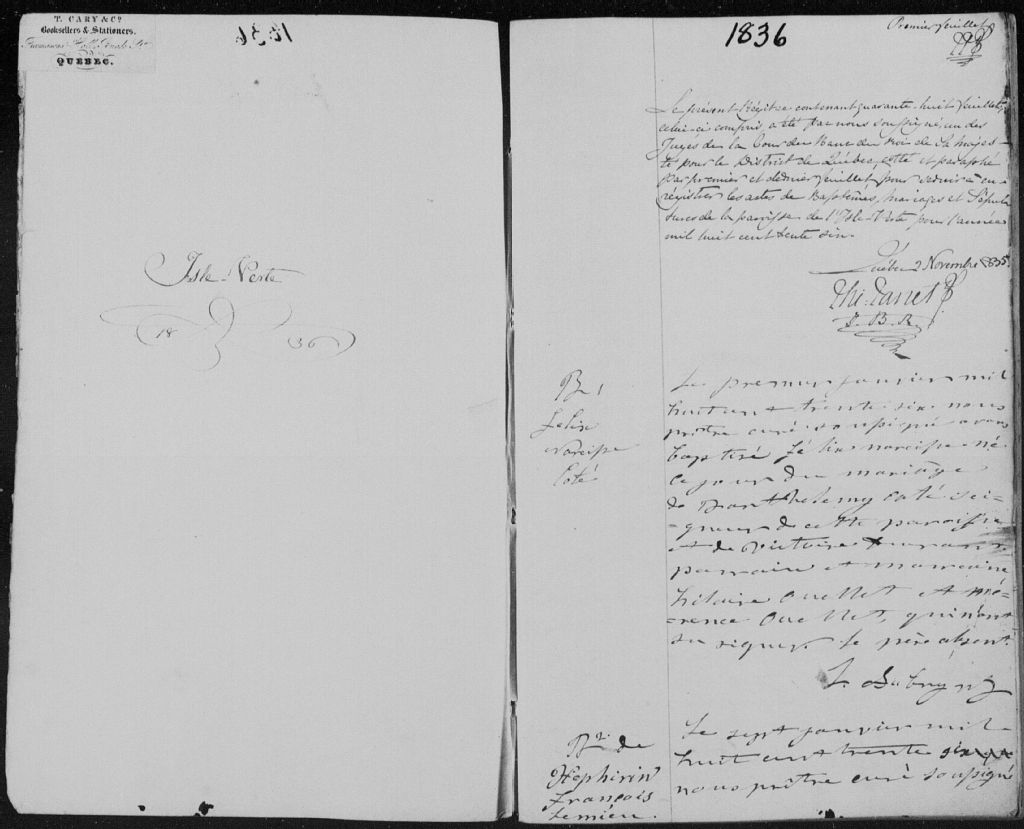 T. CARY & Cº
Booksellers & Stationers.
QUEBEC.
1836
Isle Verte
18 36
1836
Premier feuillet
Le présent Régitre contenant quarante-huit feuillets,
celui-ci compris, a été par nous soussigné, un des
Juges de la Cour du Banc du Roi de Sa Majes-
té pour le District de Québec, cotté et paraphé
par premier et dernier feuillet, pour servir à en-
régistrer les actes de Baptêmes, mariages et Sépul-
tures de la paroisse de l'Isle-Verte pour l'année
mil huit cent trente six.
Québec 2 Novembre 1835.
J. B. R.
B 1
Felix
Narcisse
Coté
Le premier janvier mil
huit cent trente six nous
prêtre curé soussigné avons
baptisé Félix narcisse né
ce jour du mariage
de Barthélemy Coté sei-
-gneur de cette paroisse
et de Victoire
parrain et marraine
hilaire Ouellet et
Ouellet, qui n'ont
su signer le père absent.
B 2 de
Zéphirin
François
Lemieu.
Le sept janvier mil
huit cent trente six
nous prêtre curé soussigné